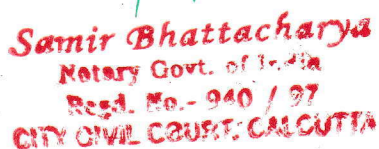 Samir Bhattacharya
Notary Govt. of India
Regd. No.- 940 / 97
CITY CIVIL COURT: CALCUTTA